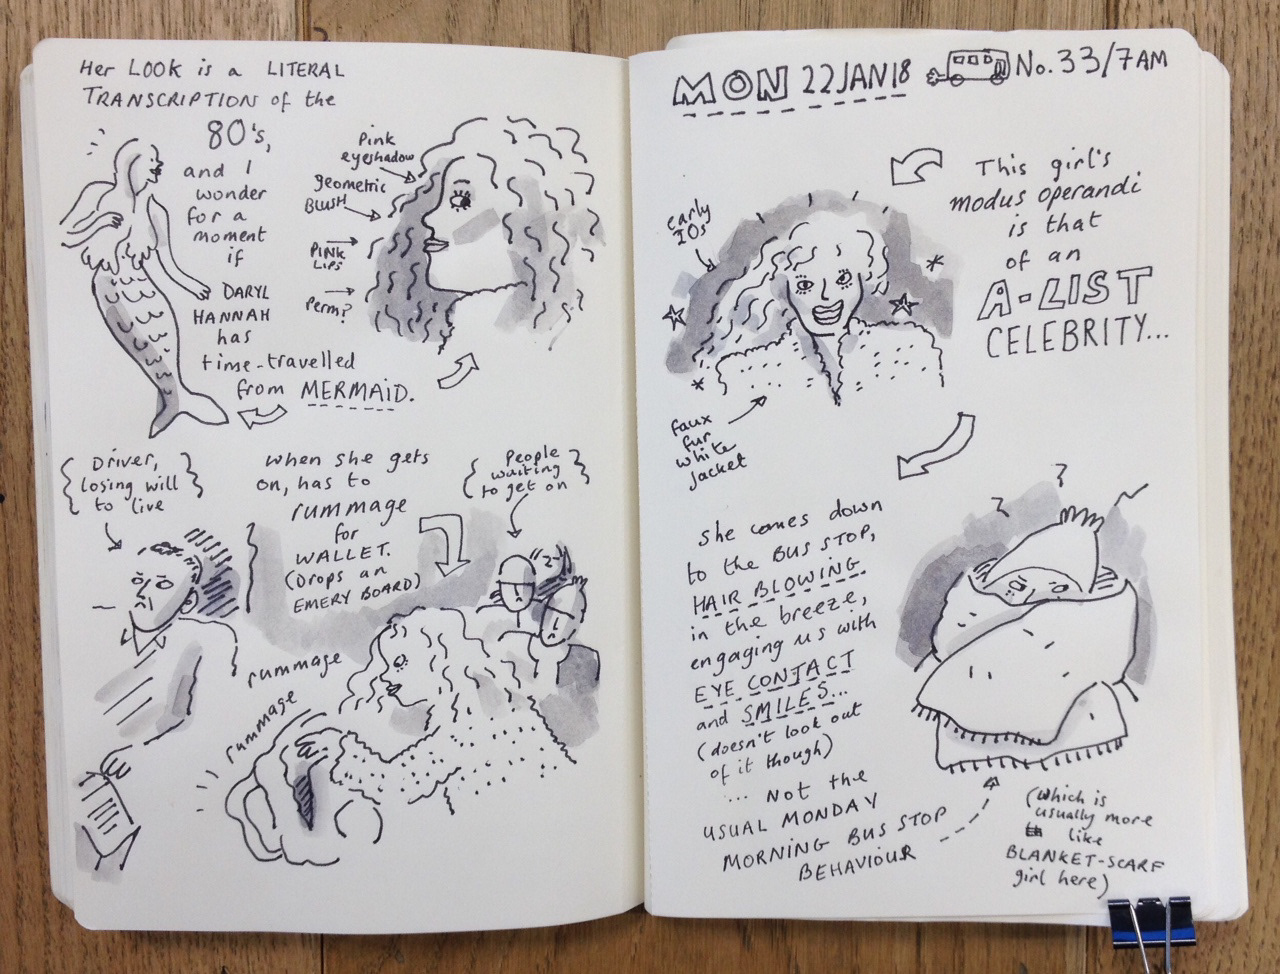 Her LOOK is a LITERAL
TRANSCRIPTION of the
80's,
and I
wonder
for a
moment
if
DARYL
HANNAH
has
time-travelled
from MERMAID.
Pink
eyeshadow
geometric
BLUSH
PINK
LIPS
Perm?
Driver,
losing will
to live
when she gets
on, has to
rummage
for
WALLET.
(DROPS an
EMERY BOARD)
People
waiting
to get on
rummage
rummage
MON 22 JAN 18
No. 33/7AM
This girl's
modus operandi
is that
of an
A-LIST
CELEBRITY...
early
20s
faux
fur
white
jacket
She comes down
to the BUS STOP,
HAIR BLOWING
in the breeze,
engaging us with
EYE CONTACT
and SMILES...
(doesn't look out
of it though)
... Not the
USUAL MONDAY
MORNING BUS STOP
BEHAVIOUR
(which is
usually more
like
BLANKET-SCARF
girl here)